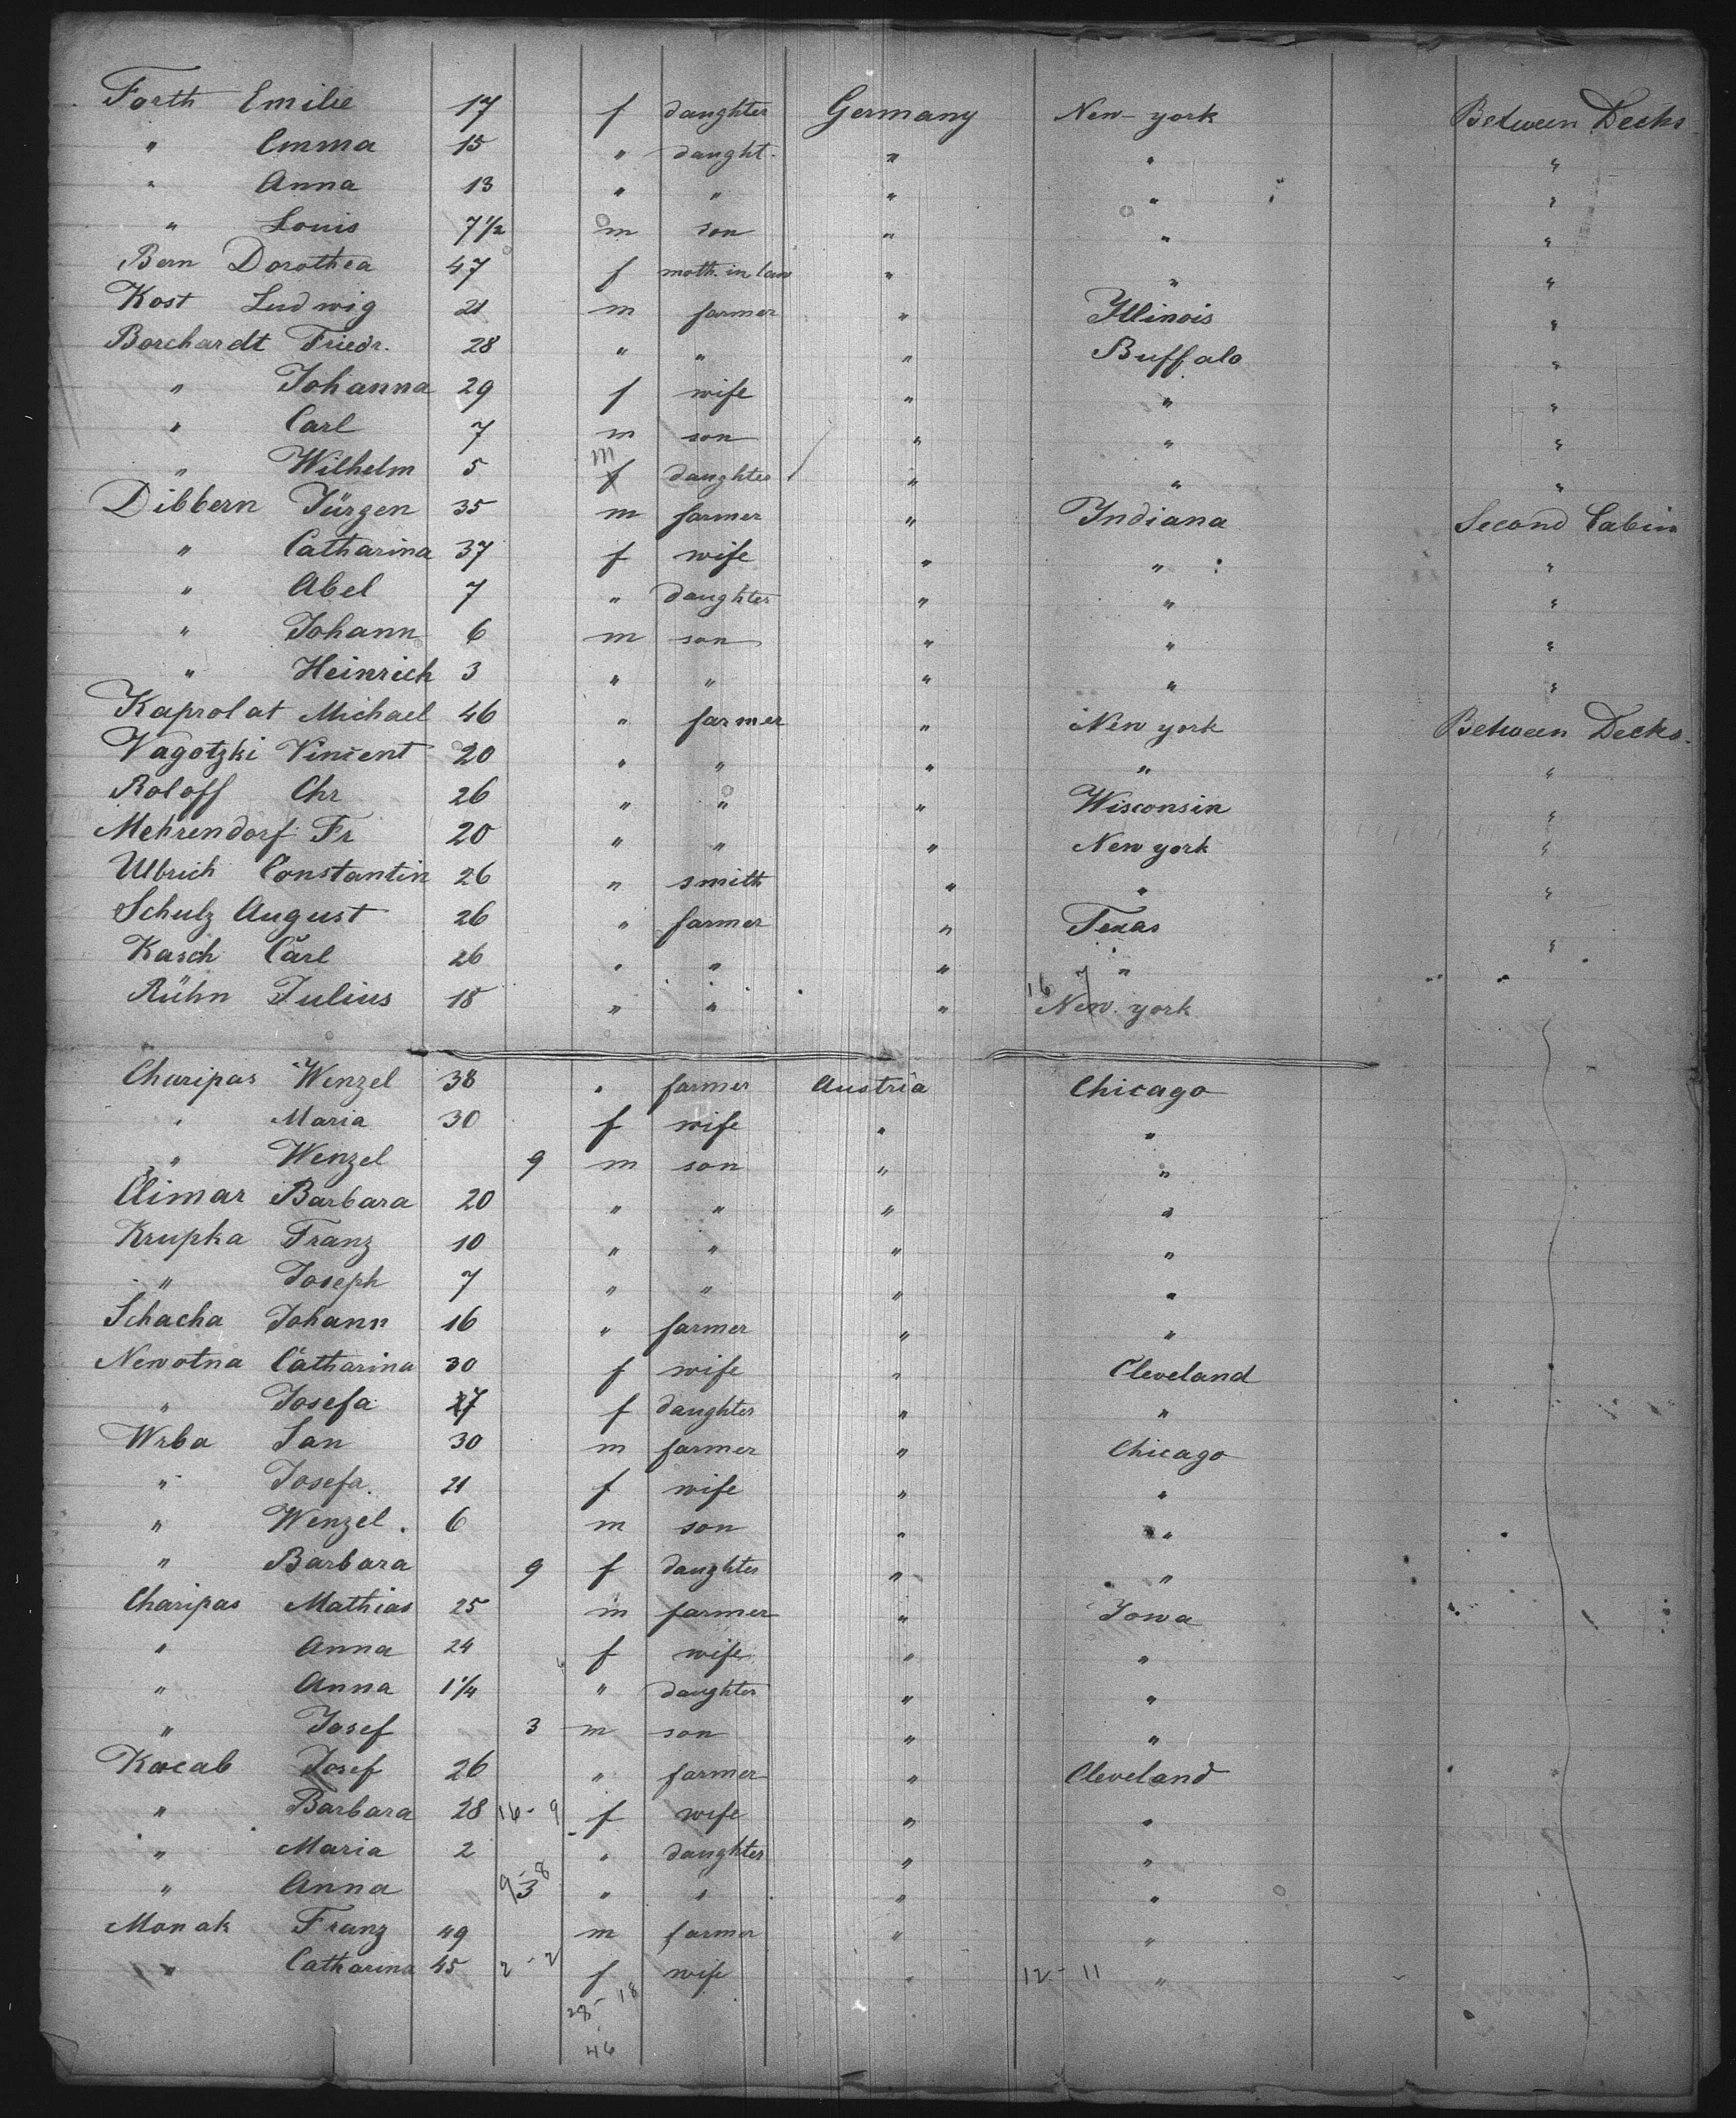 Forth Emilie 17 f daughter Germany New-york Between Decks
" Emma 15 " daught. " " "
" Anna 13 " " " " "
" Louis 7 1/2 m son " " "
Bern Dorothea 47 f moth. in law " " "
Kost Ludwig 21 m farmer " Illinois "
Borchardt Friedr. 28 " " " Buffalo "
" Johanna 29 f wife " " "
" Carl 7 m son " " "
" Wilhelm 5 m f daughter " " "
Dibbern Jürgen 35 m farmer " Indiana Second Cabin
" Catharina 37 f wife " " "
" Abel 7 " daughter " " "
" Johann 6 m son " " "
" Heinrich 3 " " " " "
Kaprolat Michael 46 " farmer " New york Between Decks.
Vagotzki Vincent 20 " " " " "
Roloff Chr 26 " " " Wisconsin "
Mehrendorf Fr 20 " " " New york "
Ulbrich Constantin 26 " smith " " "
Schulz August 26 " farmer " Texas
Kasch Carl 26 " " " " "
Rühn Julius 18 " " " 16 7 New. york
Charipas Wenzel 38 " farmer Austria Chicago
" Maria 30 f wife " "
" Wenzel 9 m son " "
Climar Barbara 20 " " " "
Krupka Franz 10 " " " "
" Joseph 7 " " " "
Schacha Johann 16 " farmer " "
Newotna Catharina 30 f wife " Cleveland
" Josefa 7 f daughter " "
Wrba Jan 30 m farmer " Chicago
" Josefa. 21 f wife " "
" Wenzel. 6 m son " "
" Barbara 9 f daughter " "
Charipas Mathias 25 m farmer " Iowa
" Anna 24 f wife " "
" Anna 1 1/4 " daughter " "
" Josef 3 m son " "
Kocab Josef 26 " farmer " Cleveland
" Barbara 28 16-9 f wife " "
" Maria 2 " daughter " "
" Anna 9-8 3 " " " "
Monak Franz 49 m farmer " "
" Catharina 45 2-2 f wife " 12-11 "
28-18
46